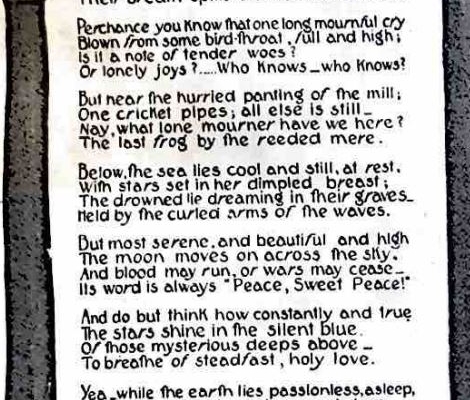 Perchance you know that one long mournful cry
Blown from some bird-throat, full and high;
Is it a note of tender woes?
Or lonely joys?.....Who knows_who knows?
But near the hurried panting of the mill;
One cricket pipes; all else is still_
Nay, what lone mourner have we here?
The last frog by the reeded mere.
Below, the sea lies cool and still, at rest,
With stars set in her dimpled breast;
The drowned lie dreaming in their graves_
Held by the curled arms of the waves.
But most serene, and beautiful and high
The moon moves on across the sky.
And blood may run, or wars may cease_
Its word is always "Peace, Sweet Peace!"
And do but think how constantly and true
The stars shine in the silent blue.
Of those mysterious deeps above_
To breathe of steadfast, holy love.
Yea_while the earth lies passionless, asleep,